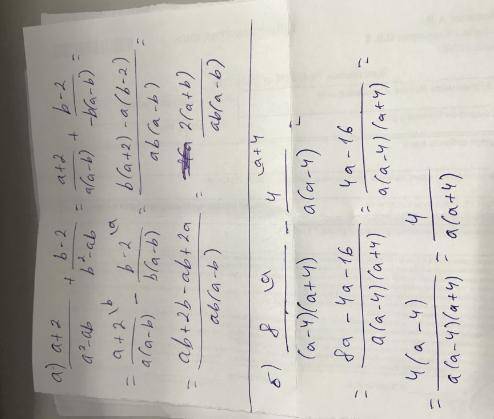 а) (a+2)/(a²-ab) + (b-2)/(b²-ab) = (a+2)/(a(a-b)) + (b-2)/(-b(a-b)) =
= (a+2\b)/(a(a-b)) - (b-2\a)/(b(a-b)) = (b(a+2)-a(b-2))/(ab(a-b)) =
= (ab+2b-ab+2a)/(ab(a-b)) = (2(a+b))/(ab(a-b))
б) (8\a)/((a-4)(a+4)) - (4\a+4)/(a(a-4)) =
= (8a-4a-16)/(a(a-4)(a+4)) = (4a-16)/(a(a-4)(a+4)) =
= (4(a-4))/(a(a-4)(a+4)) = 4/(a(a+4))